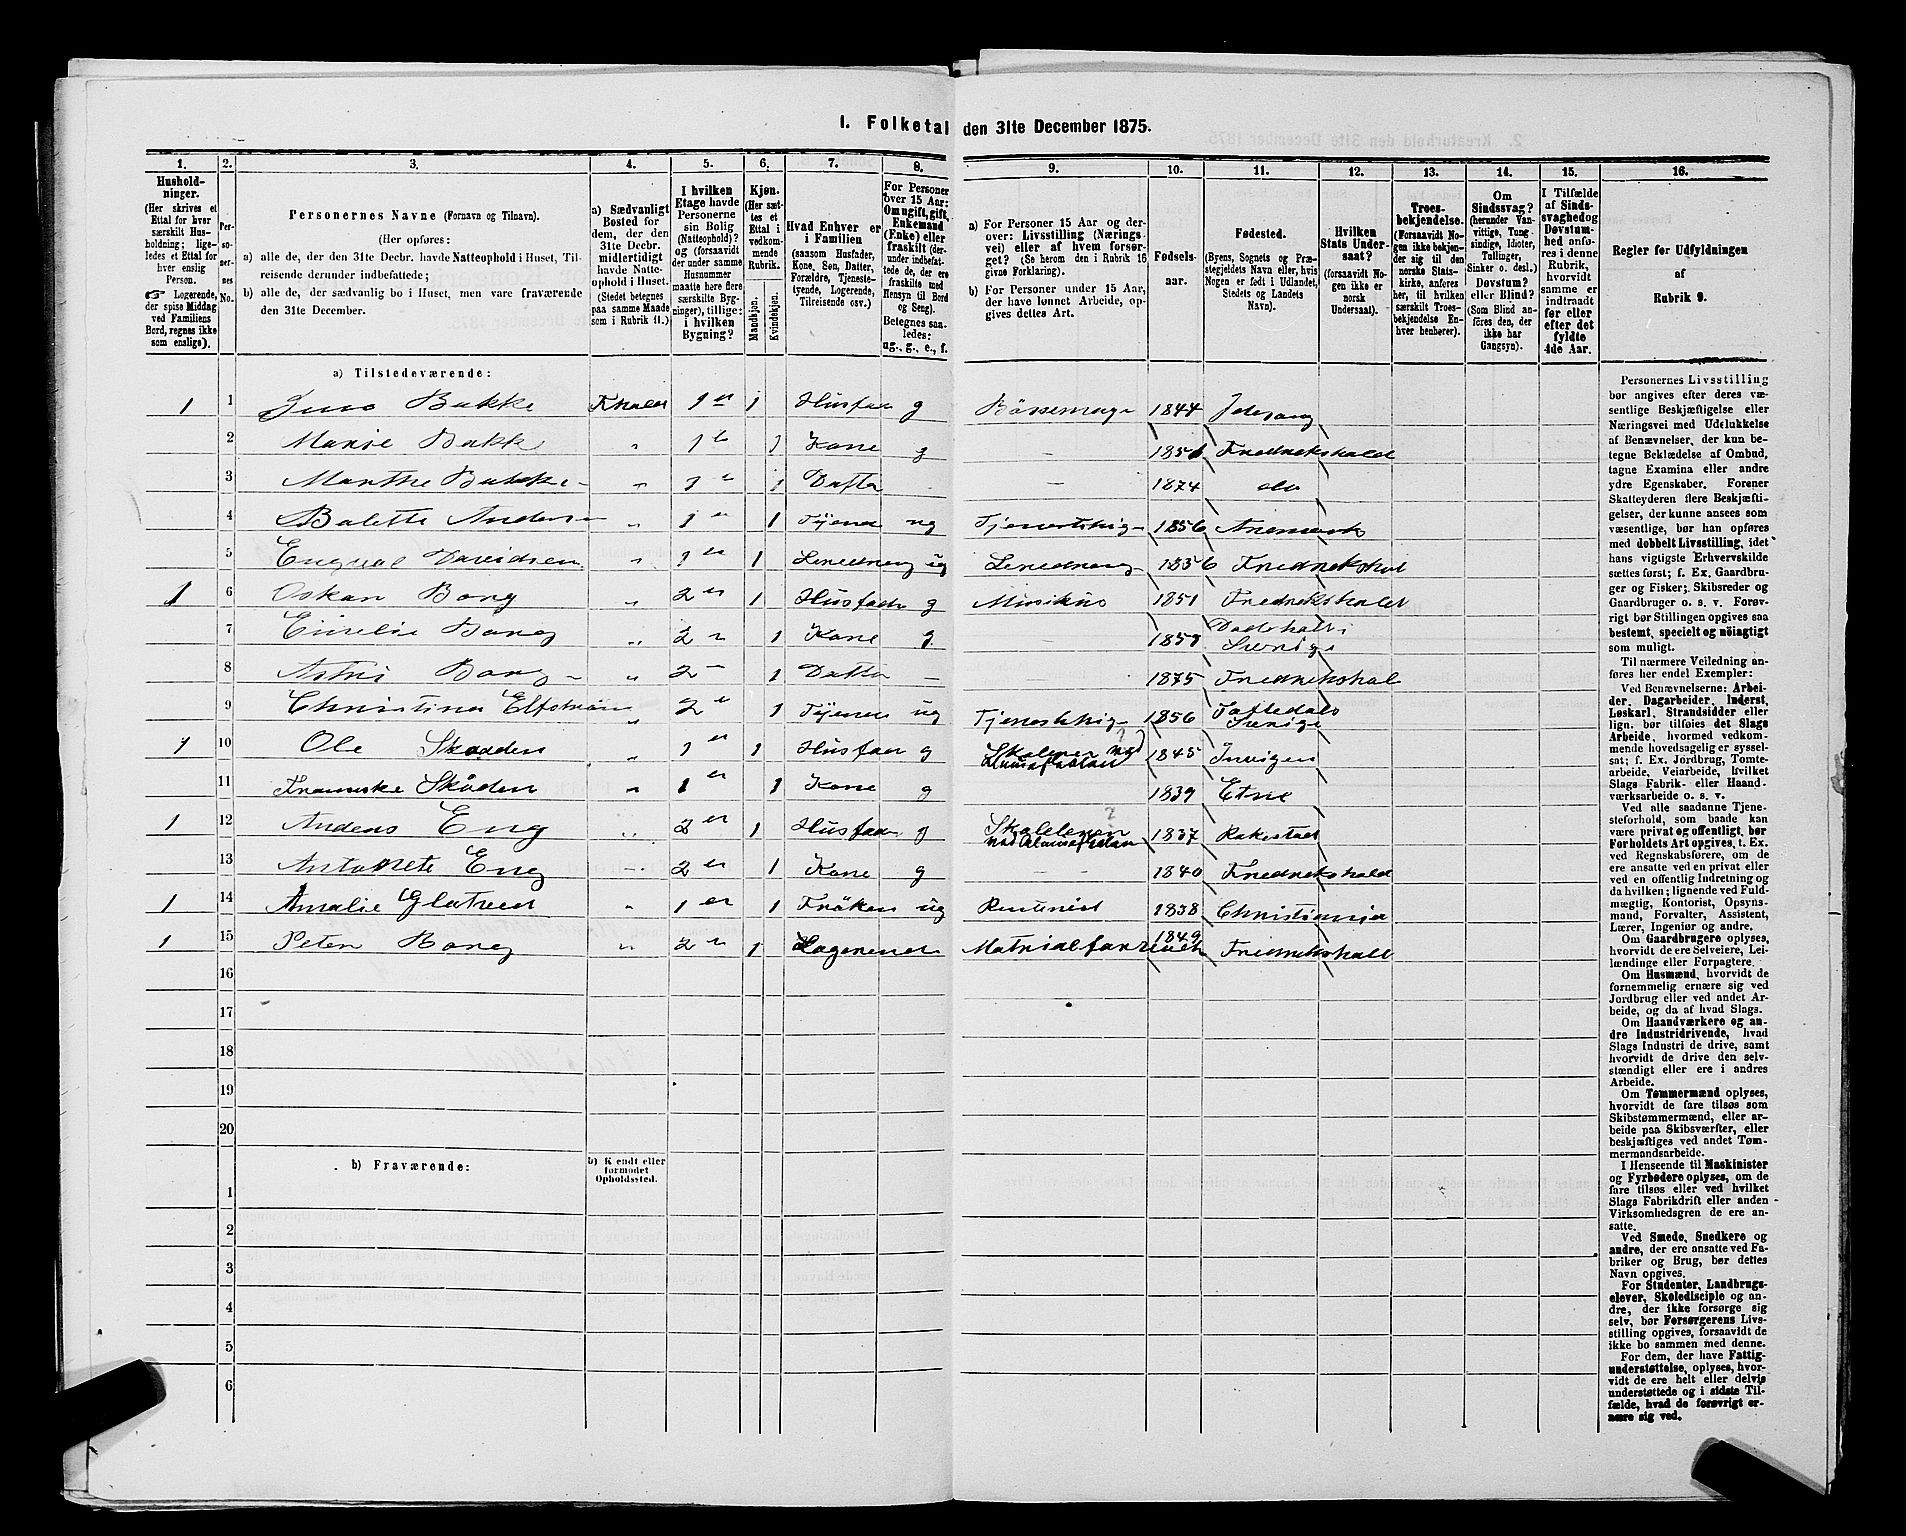 1. Folketal den 31te December 1875.
1. 2. 3. 4. 5. 6. 7. 8. 9. 10. 11. 12. 13. 14. 15. 16.
Hushold-
ninger.
(Her skrives et
Ettal for hver
særskilt Hus-
holdning; lige-
ledes et Ettal for
hver enslig
Person.
☞ Logerende,
der spise Middag
ved Familiens
Bord, regnes ikke
som enslige).
Per-
so-
ner-
nes
No.
Personernes Navne (Fornavn og Tilnavn).
(Her opføres:
a) alle de, der den 31te Decbr. havde Natteophold i Huset, Til-
reisende derunder indbefattede;
b) alle de, der sædvanlig bo i Huset, men vare fraværende
den 31te December.
a) Sædvanligt
Bosted for
dem, der den
31te Decbr.
midlertidigt
havde Natte-
ophold i Huset.
(Stedet betegnes
paa samme Maade
som i Rubrik 11.)
I hvilken
Etage havde
Personerne
sin Bolig
(Natteophold)?
og (forsaavidt
der under samme
Husnummer
maatte høre flere
særskilte Byg-
ninger), tillige:
i hvilken
Bygning?
Kjøn.
(Her sæt-
tes et
Ettal i
vedkom-
mende
Rubrik.
Mandkjøn.
Kvindekjøn.
Hvad Enhver er
i Familien
(saasom Husfader,
Kone, Søn, Datter,
Forældre, Tjeneste-
tyende, Logerende,
Tilreisende osv.)
For Personer
over 15 Aar:
Om ugift, gift,
Enkemand
(Enke) eller
fraskilt (der-
under indbefat-
tede de, der ere
fraskilte med
Hensyn til Bord
og Seng).
Betegnes saa-
ledes:
ug., g., e., f.
a) For Personer 15 Aar og der-
over: Livsstilling (Nærings-
vei) eller af hvem forsør-
get? (Se herom den i Rubrik 16
givne Forklaring).
b) For Personer under 15 Aar,
der have lønnet Arbeide, op-
gives dettes Art.
Fødsels-
aar.
Fødested.
(Byens, Sognets og Præ-
stegjeldets Navn eller, hvis
Nogen er født i Udlandet,
Stedets og Landets
Navn).
Hvilken
Stats Under-
saat?
(forsaavidt No-
gen ikke er
norsk
Undersaat).
Troes-
bekjendelse.
(Forsaavidt No-
gen ikke bekjen-
der sig til den
norske Stats-
kirke, anføres
her, til hvilken
særskilt Troes-
bekjendelse En-
hver henhører).
Om
Sindssvag?
(herunder Van-
vittige, Tung-
sindige, Idioter,
Tullinger,
Sinker o. desl.)
Døvstum?
eller Blind?
(Som Blind an-
føres den, der
ikke har
Gangsyn).
I Tilfælde
af Sinds-
svaghed og
Døvstum-
hed anfø-
res i denne
Rubrik,
hvorvidt
samme er
indtraadt
før eller
efter det
fyldte
4de Aar.
Regler for Udfyldningen
af
Rubrik 9.
a) Tilstedeværende:
1 1 Jens Bakke Fhald 1 1 Husfad g 1844
2 Marie Bakk " 1 1 Kone g - 1851 Fredrekshald
3 Marthe Bakke " 1 1 Datter - - 1874 do
4 Balette Anders " 1 1 Tjene ug 1856 Aremark
5 Engval Davidsen " 1 1 ug 1856 Fredrekshal
1 6 Oskar Bang " 2 1 Husfade g Musikus 1851 Fredrekshald
7 Emelie Bang " 2 1 Kone g - Sverige
8 Bang " 2 1 Datter - - 1875 Fredrekshal
9 Christina Elfstrøm " 2 1 Tjene ug 1856 Sverige
1 10 Ole Skaaden " 1 1 Husfad g 1845
11 Franciske Skåden " 1 1 Kone g 1839 Etne
1 12 Anders Eng " 2 1 Husfade g 1837 Rakestad
13 Antonete Eng 2 1 Kone g - 1840 Fredrekshald
1 14 Amalie " 1 1 Frøken ug 1838 Christiania
1 15 Peter Bang " 2 1 Logerende 1849 Fredrekshald
16
17
18
19
20
b) Fraværende:
b) Kjendt eller
formodet
Opholdssted.
1
2
3
4
5
6
Personernes Livsstilling
bør angives efter deres væ-
sentlige Beskjæftigelse eller
Næringsvei med Udelukkelse
af Benævnelser, der kun be-
tegne Beklædelse af Ombud,
tagne Examina eller andre
ydre Egenskaber. Forener
Skatteyderen flere Beskjæfti-
gelser, der kunne ansees som
væsentlige, bør han opføres
med dobbelt Livsstilling, idet
hans vigtigste Erhvervskilde
sættes først; f. Ex. Gaardbru-
ger og Fisker; Skibsreder og
Gaardbruger o. s. v. Forøv-
rigt bør Stillingen opgives saa
bestemt, specielt og nøiagtigt
som muligt.
Til nærmere Veiledning an-
føres her endel Exempler:
Ved Benævnelserne: Arbei-
der, Dagarbeider, Inderst,
Løskarl, Strandsidder eller
lign. bør tilføies det Slags
Arbeide, hvormed vedkom-
mende hovedsagelig er syssel-
sat; f. Ex. Jordbrug, Tomte-
arbeide, Veiarbeide, hvilket
Slags Fabrik- eller Haand-
værksarbeide o. s. v.
Ved alle saadanne Tjene-
steforhold, som baade kan
være privat og offentligt, bør
Forholdets Art opgives, t. Ex.
ved Regnskabsførere, om de
ere ansatte ved en privat eller
ved en offentlig Indretning og
da hvilken; lignende ved Fuld-
mægtig, Kontorist, Opsyns-
mand, Forvalter, Assistent,
Lærer, Ingeniør og andre.
Om Gaardbrugere oplyses,
hvorvidt de ere Selveiere, Lei-
lændinge eller Forpagtere.
Om Husmænd, hvorvidt de
fornemmelig ernære sig ved
Jordbrug eller ved andet Ar-
beide, og da af hvad Slags.
Om Haandværkere og an-
dre Industridrivende, hvad
Slags Industri de drive, samt
hvorvidt de drive den selv-
stændigt eller ere i andres
Arbeide.
Om Tømmermænd oplyses,
hvorvidt de fare tilsøs som
Skibstømmermænd, eller ar-
beide paa Skibsværfter, eller
beskjæftiges ved andet Tøm-
mermandsarbeide.
I Henseende til Maskinister
og Fyrbødere oplyses, om de
fare tilsøs eller ved hvilket
Slags Fabrikdrift eller anden
Virksomhedsgren de ere an-
satte.
Ved Smede, Snedkere og
andre, der ere ansatte ved Fa-
briker og Brug, bør dettes
Navn opgives.
For Studenter, Landbrugs-
elever, Skoledisciple og an-
dre, der ikke forsørge sig
selv, bør Forsørgerens Livs-
stilling opgives, forsaavidt de
ikke bo sammen med denne.
For dem, der have Fattig-
understøttelse, oplyses, hvor-
vidt de ere helt eller delvis
understøttede og i sidste Til-
fælde, hvad de forøvrigt er-
nære sig ved.